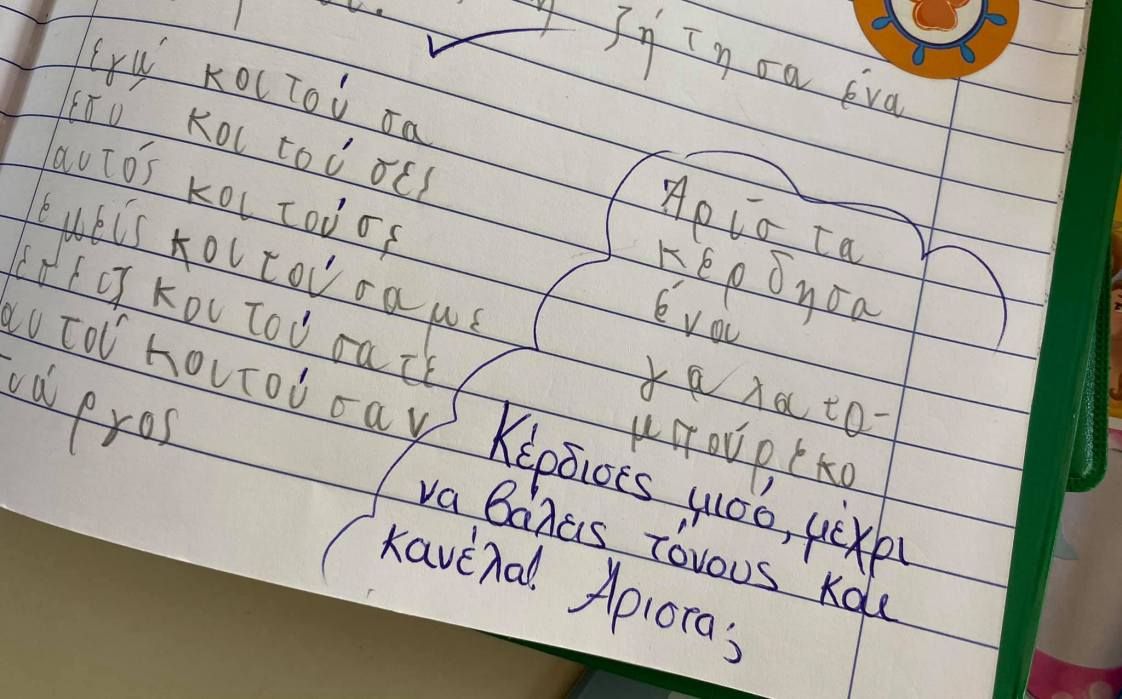 ζήτησα ένα
εγώ κοιτούσα
εσυ κοιτούσες
αυτός κοιτούσε
εμείς κοιτούσαμε
εσείς κοιτούσατε
αυτοί κοιτούσαν
Άριστα
κέρδησα
ένα
γαλατο-
μπούρεκο
Κέρδισες μισό, μέχρι
να βάλεις τόνους και
κανέλα! Άριστα;